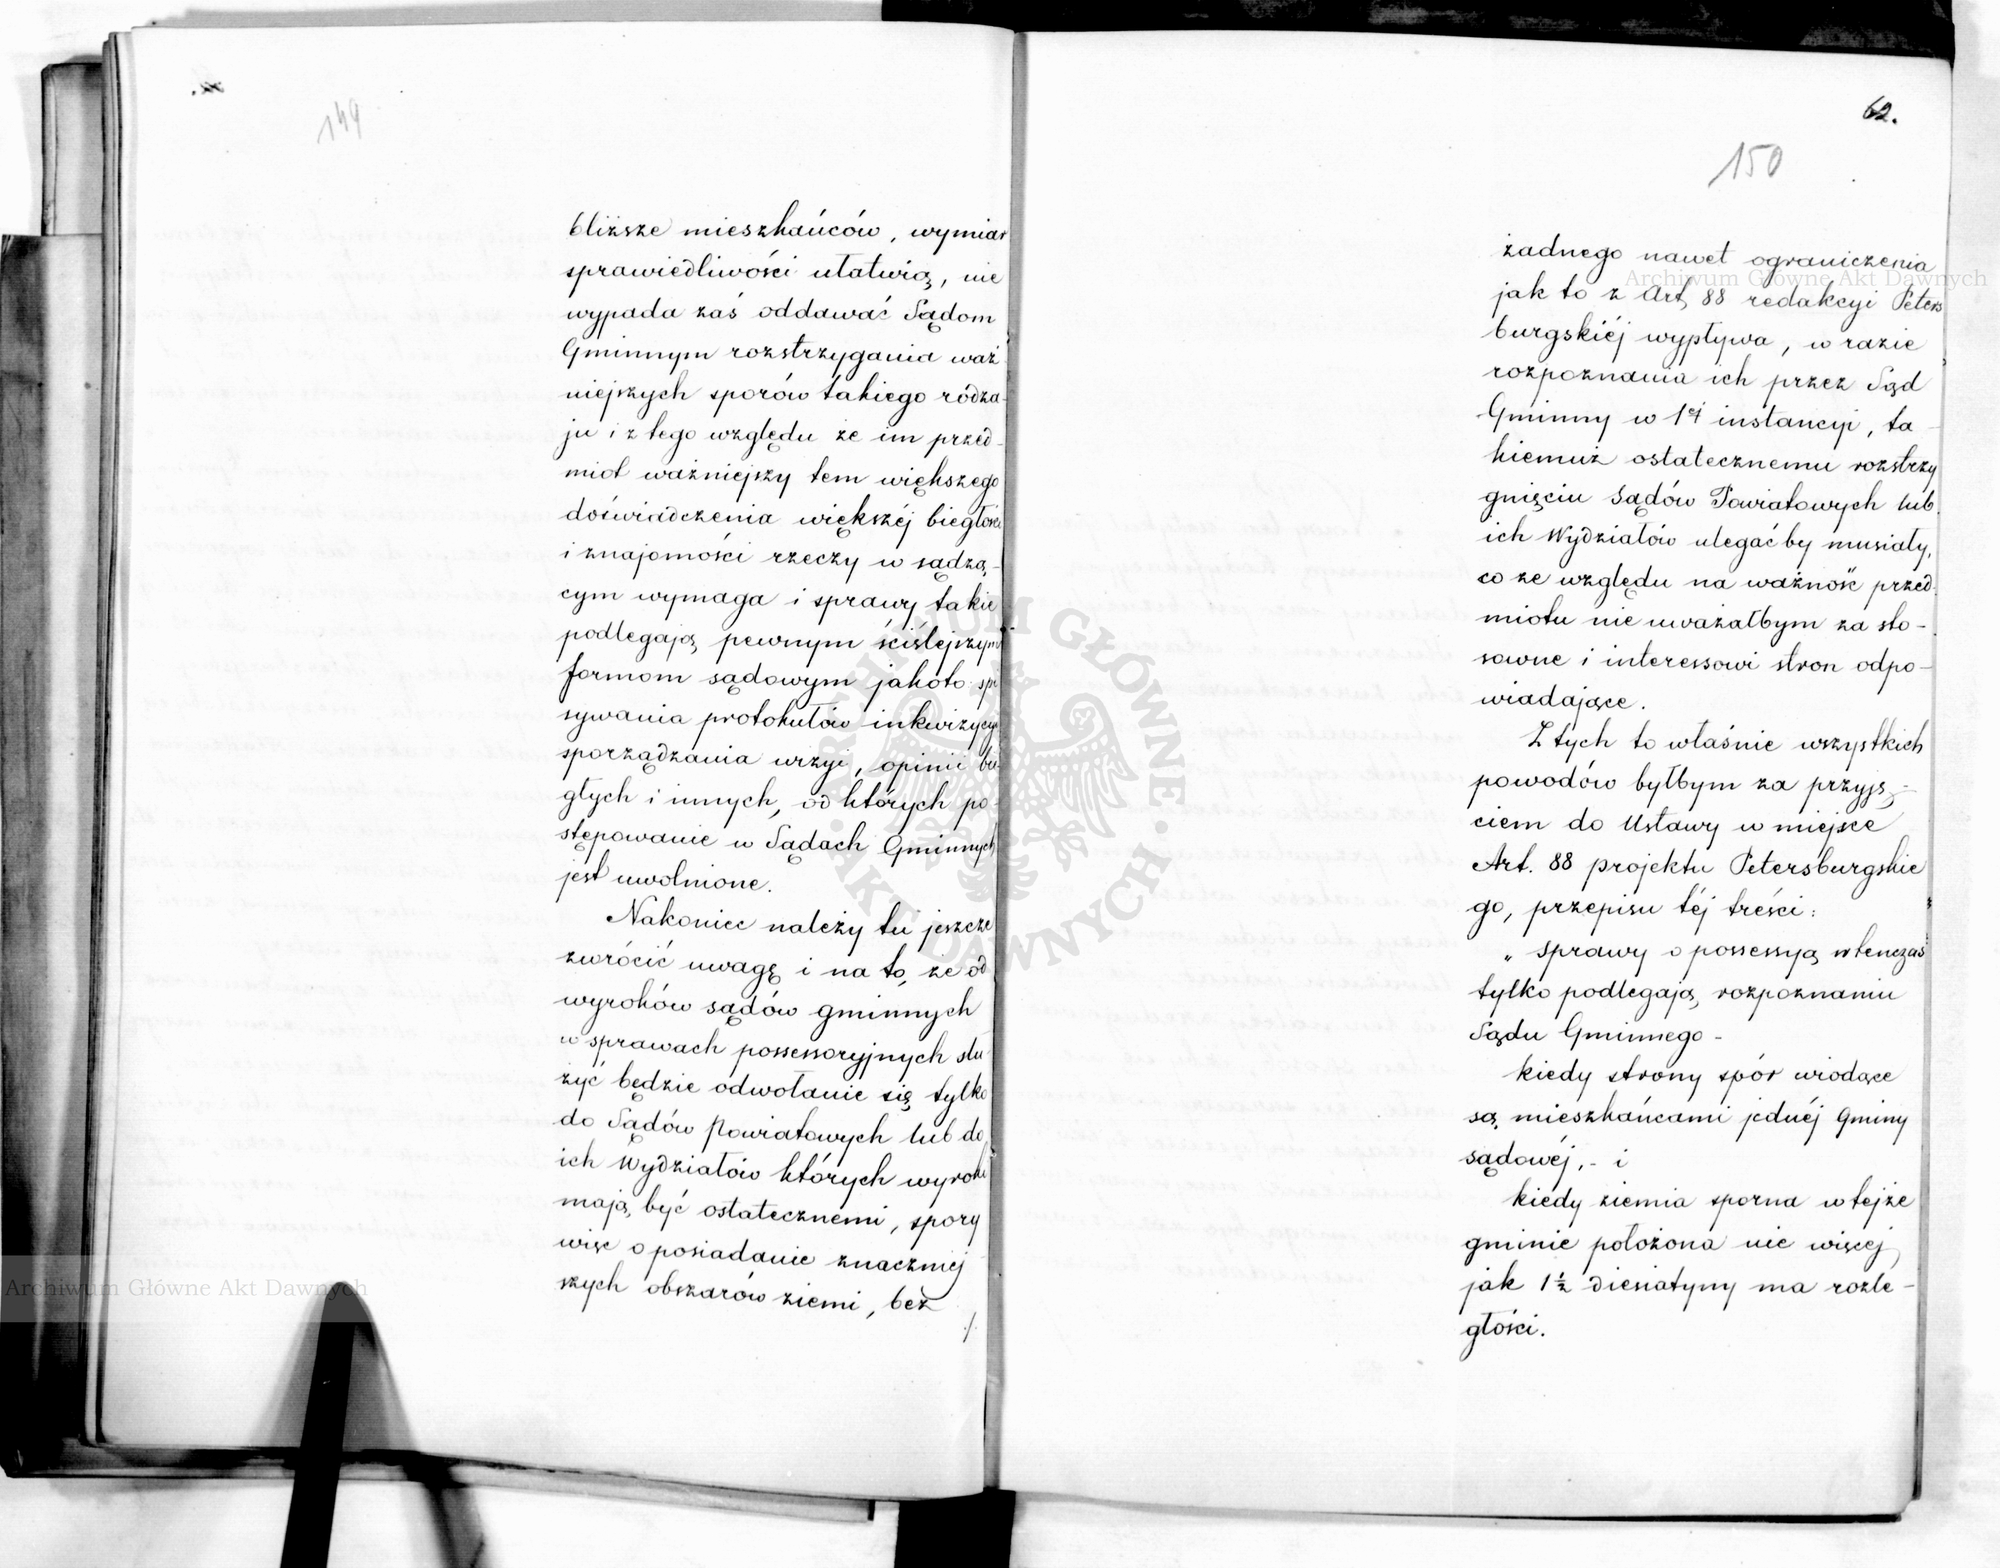 149
bliższe mieszkańców, wymiar
sprawiedliwości ułatwią, nie
wypada zaś oddawać Sądom
Gminnym rozstrzygania waż
niejszych sporów takiego rodza-
ju i z tego względu że im przed-
miot ważniejszy tem większego
doświadczenia większéj biegłości
i znajomości rzeczy w sądzą-
cym wymaga i sprawy takie
podlegają pewnym ściślejszym
formom sądowym jakoto: spi
sywania protokułów inkwizycyi
sporządzania wizyi, opinii bie-
głych i innych, od których po-
stępowanie w Sądach Gminnych
jest uwolnione.
Nakoniec należy tu jeszcze
zwrócić uwagę i na to, że od
wyroków sądów gminnych
w sprawach possessoryjnych słu
żyć będzie odwołanie się tylko
do Sądów Powiatowych lub do
ich Wydziałów których wyroki
mają być ostatecznemi, spory
więc o posiadanie znaczniej
szych obszarów ziemi, bez
./.
62.
150
żadnego nawet ograniczenia
jak to z Art. 88 redakcyi Peters
burgskiéj wypływa, w razie
rozpoznania ich przez Sąd
Gminny w 1éj instancyi, ta-
kiemuż ostatecznemu rozstrzy
gnięciu Sądów Powiatowych lub
ich Wydziałów ulegać by musiały,
co ze względu na ważność przed-
miotu nie uważałbym za sto-
sowne i interessowi stron odpo-
wiadające.
Z tych to właśnie wszystkich
powodów byłbym za przyję-
ciem do Ustawy w miejsce
Art. 88 projektu Petersburgskie
go, przepisu téj treści:
„ sprawy o possessyą wtenczas
tylko podlegają rozpoznaniu
Sądu Gminnego -
kiedy strony spór wiodące
są mieszkańcami jednéj Gminy
sądowéj, - i
kiedy ziemia sporna w tejże
gminie położona nie więcej
jak 1½ diesiatyny ma rozle-
głości.
Archiwum Główne Akt Dawnych
Archiwum Główne Akt Dawnych
ARCHIWUM GŁÓWNE · AKT DAWNYCH ·